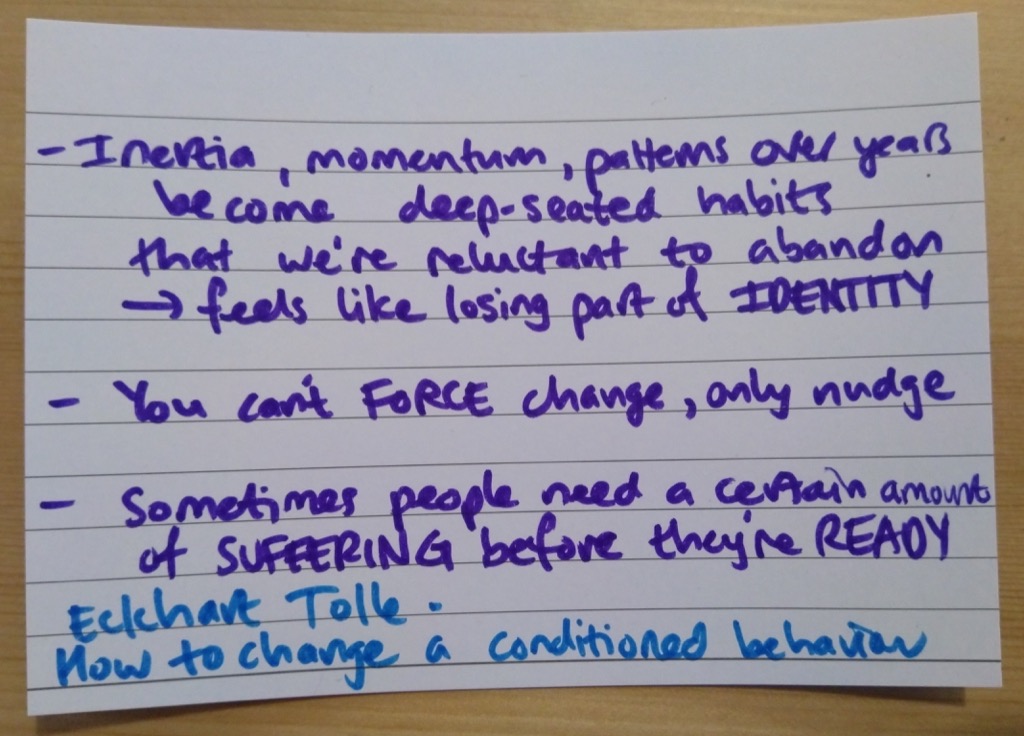 - Inertia, momentum, patterns over years
become deep-seated habits
that we're reluctant to abandon
→ feels like losing part of IDENTITY
- You can't FORCE change, only nudge
- Sometimes people need a certain amount
of SUFFERING before they're READY
Eckhart Tolle.
How to change a conditioned behavior